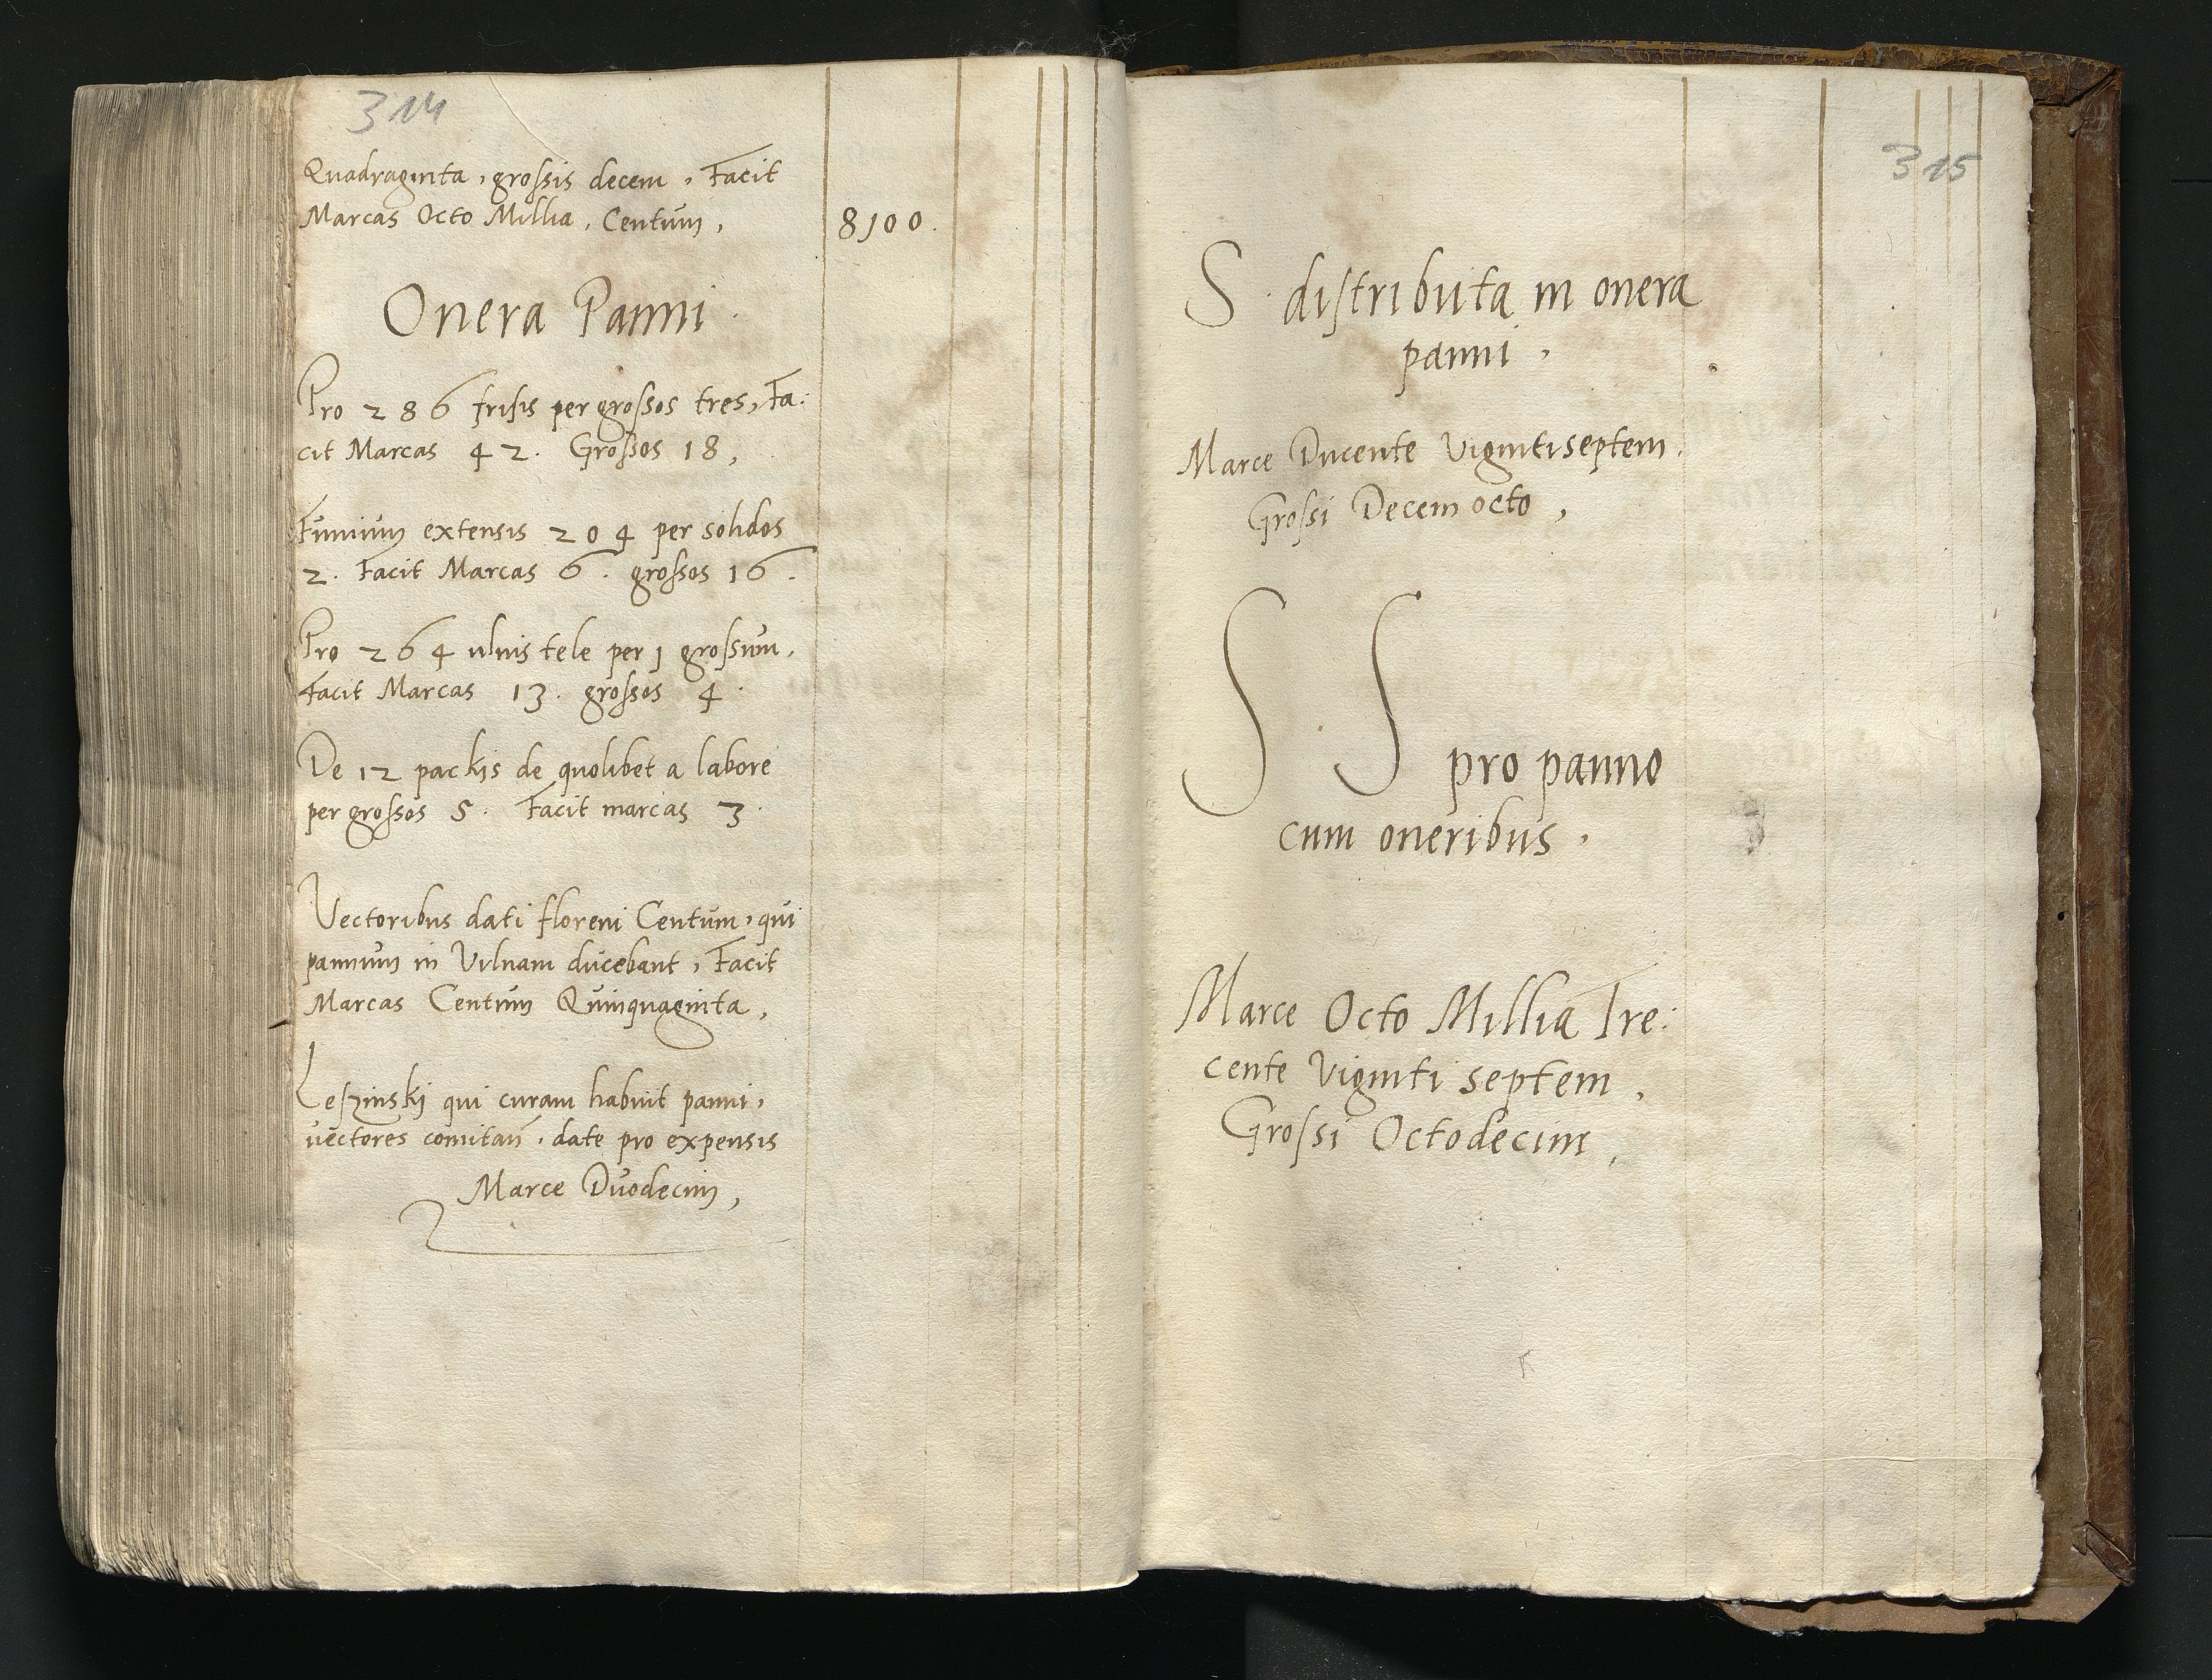 314
Quadraginta, grossis decem, Facit
Marcas Octo Millia, Centum,
8100.
Onera Panni.
Pro 286 frisis per grossos tres, Fa:
cit Marcas 42. Grossos 18,
Funium extensis 204 per solidos
2. Facit Marcas 6. grossos 16.
Pro 264 ulnis tele per 1 grossum,
Facit Marcas 13. grossos 4.
De 12 packis de quolibet a labore
per grossos 5. Facit marcas 3.
Vectoribus dati floreni Centum, qui
pannum in Vilnam ducebant, Facit
Marcas Centum Quinquaginta,
Leszinskj qui curam habuit panni,
vectores comitan̄. date pro expensis
Marce Duodecim,
315
S. distributa in onera
panni,
Marce Ducente Vigintiseptem.
Grossi Decem octo,
S. S pro panno
cum oneribus,
Marce Octo Millia Tre:
cente Viginti septem,
Grossi Octodecim,